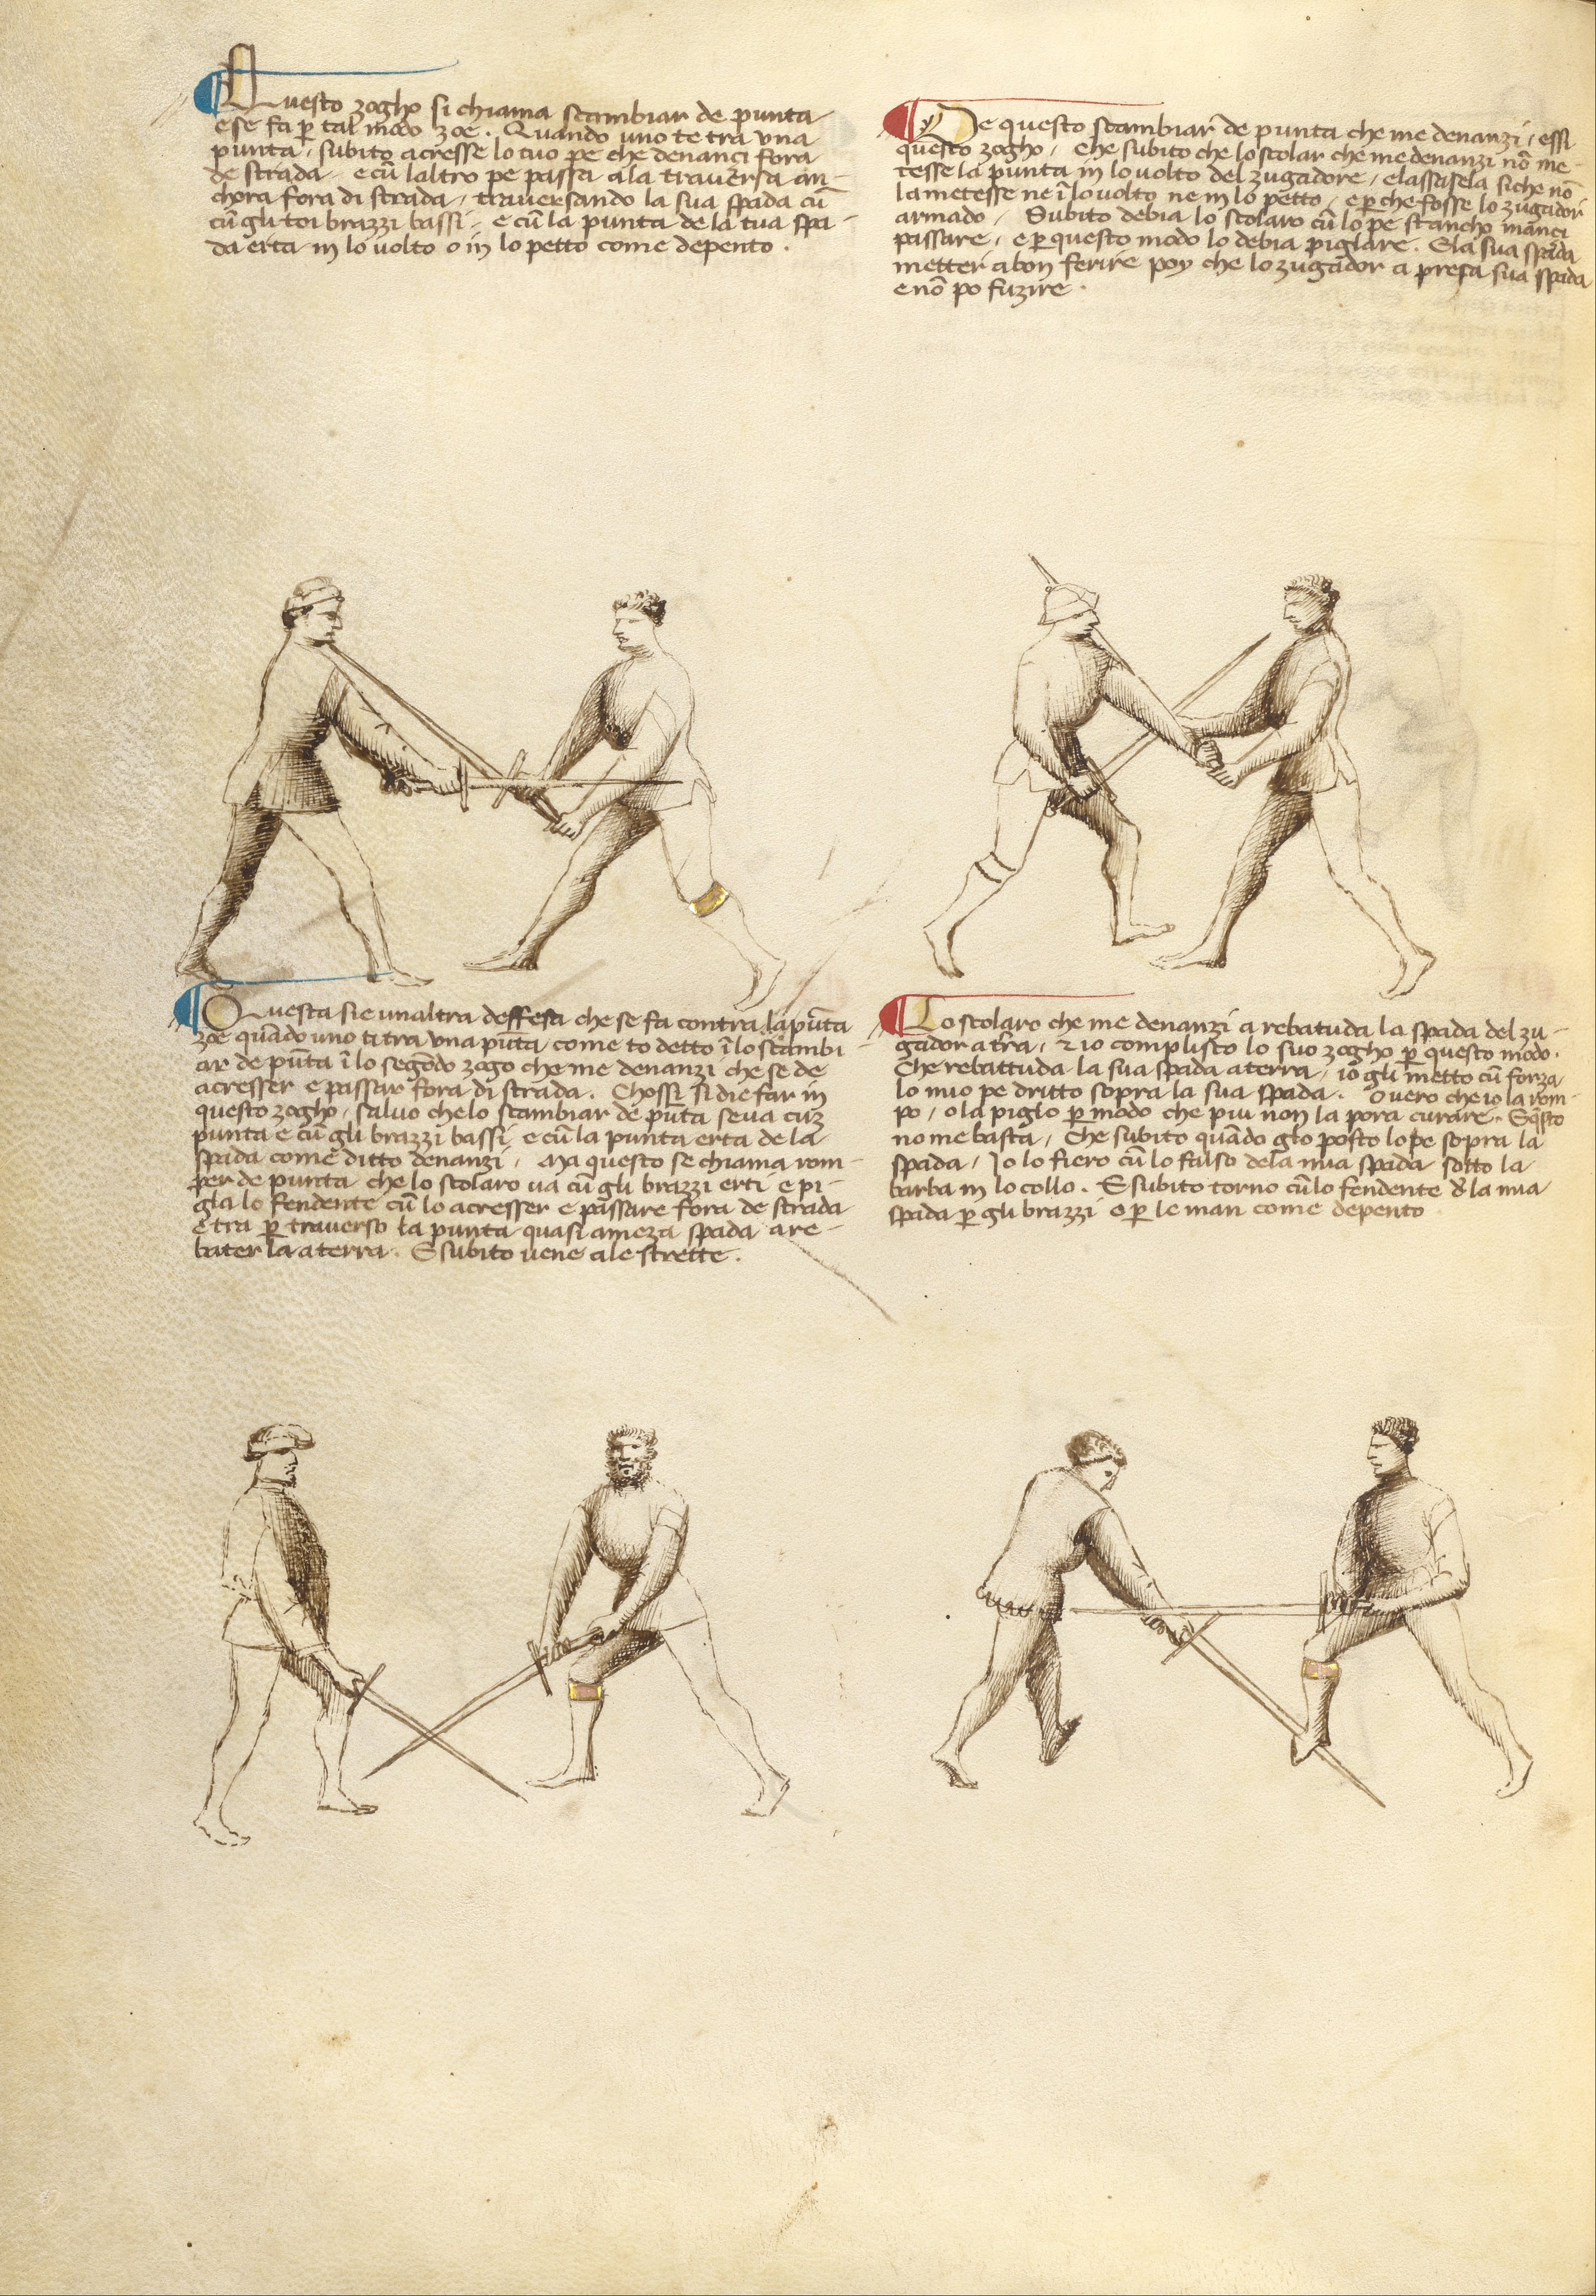 Questo zogho si chiama scambiar de punta
e se fa p tal modo zoe. Quando uno te tra una
punta, subito acresse lo tuo pe che denanci fora
de strada e cũ laltro pe passa ala traversa an-
chora fora di strada, traversando la sua spada cũ
cũ gli toi brazzi bassi, e cũ la punta de la tua spa-
da erta in lo volto o in lo petto come depento.
De questo scambiar de punta che me denanzi, essi
questo zogho, che subito che lo scolar che me denanzi nõ me-
tesse la punta in lo volto del zugadore, e lassasela si che nõ
la metesse ne ĩ lo volto ne in lo petto, e p che fosse lo zugador
armado, Subito debia lo scolaro cũ lo pe stancho inanci
passare, e p questo modo lo debia piglare. E la sua spada
metter a bon ferire poy che lo zugador a presa sua spada
e nõ po fuzire.
Questa si e unaltra deffesa che se fa contra la pũta
zoe quãdo uno ti tra una pũta, come to detto ĩ lo scambi-
ar de pũta ĩ lo segõdo zogo che me denanzi che se de
acresser e passar fora di strada. Chossi si die far in
questo zogho, salvo che lo scambiar de pũta se va cũ
punta e cũ gli brazzi bassi, e cũ la punta erta de la
spada come ditto denanzi, Ma questo se chiama rom-
per de punta che lo scolaro va cũ gli brazzi erti e pi-
gla lo fendente cũ lo acresser e passare fora de strada
e tra p traverso la punta quasi a meza spada a re-
bater la a terra. E subito vene ale strette.
Lo scolaro che me denanzi a rebatuda la spada del zu-
gador a tra, & io complisco lo suo zogho p questo modo.
Che rebattuda la sua spada a terra, io gli metto cũ forza
lo mio pe dritto sopra la sua spada. Overo che io la rom-
po, o la piglo p modo che piu non la pora curare. E q̃sto
no me basta, Che subito quãdo glo posto lo pe sopra la
spada, Io lo fiero cũ lo falso de la mia spada sotto la
barba in lo collo. E subito torno cũ lo fendente de la mia
spada p gli brazzi o p le man come depento